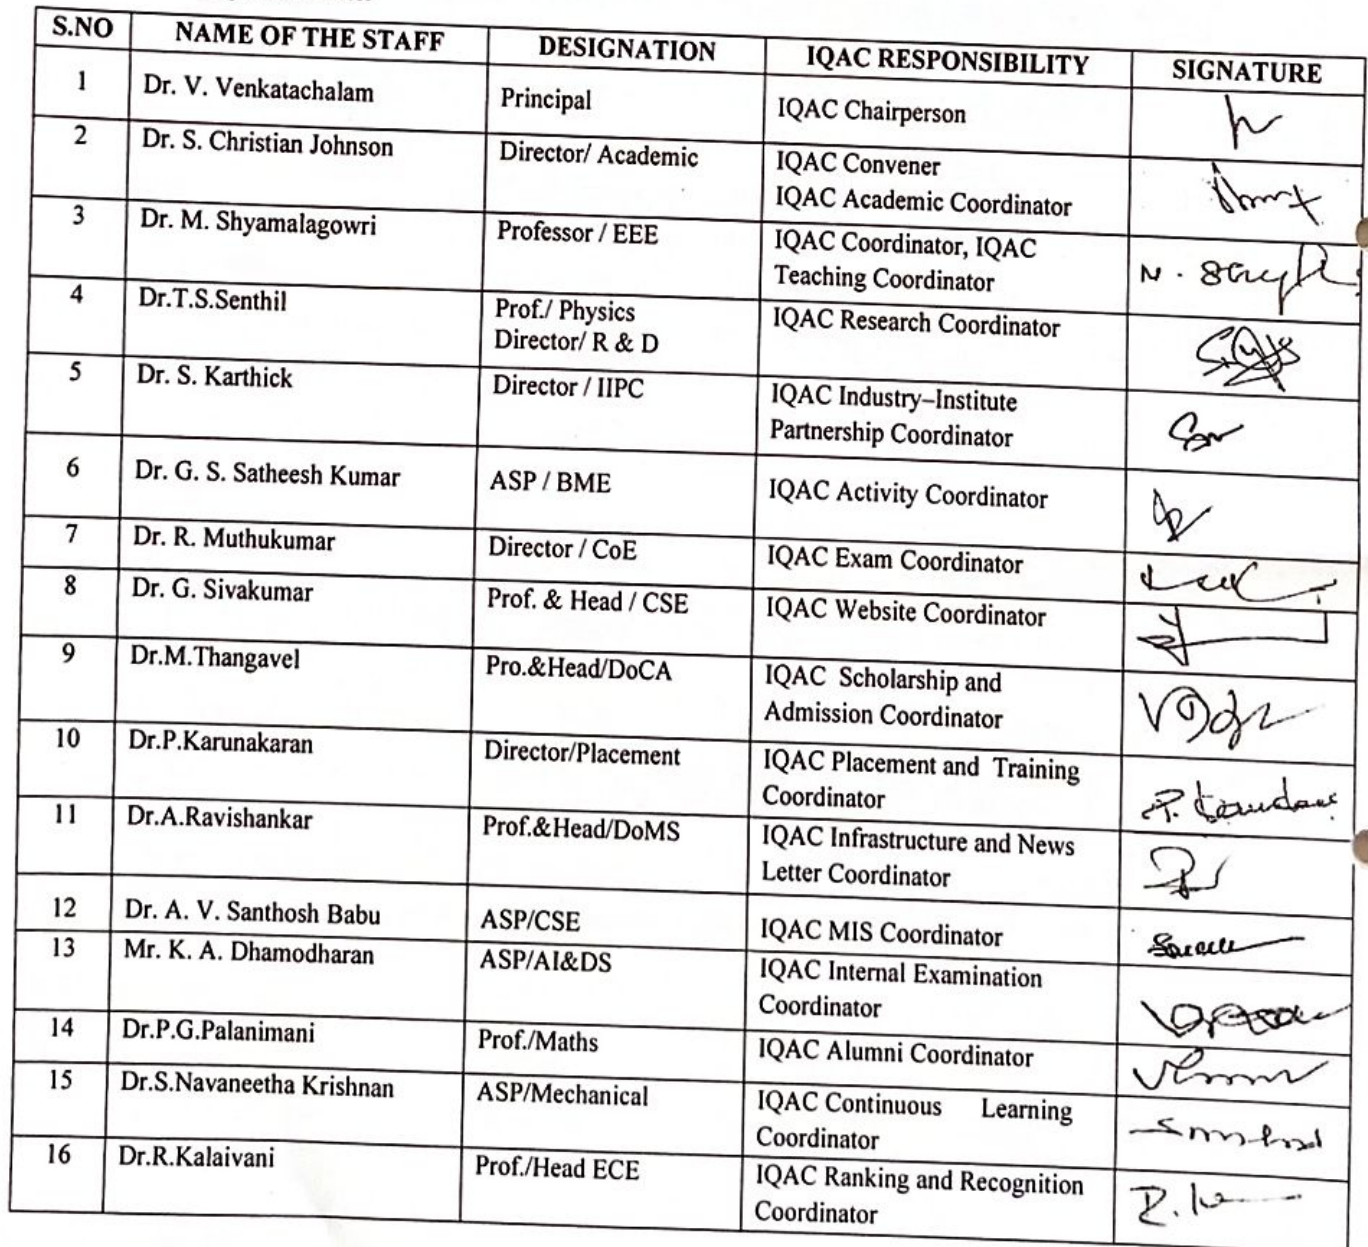 S.NO NAME OF THE STAFF DESIGNATION IQAC RESPONSIBILITY SIGNATURE
1 Dr. V. Venkatachalam Principal IQAC Chairperson
2 Dr. S. Christian Johnson Director/ Academic IQAC Convener
IQAC Academic Coordinator
3 Dr. M. Shyamalagowri Professor / EEE IQAC Coordinator, IQAC
Teaching Coordinator
4 Dr.T.S.Senthil Prof./ Physics IQAC Research Coordinator
Director/ R & D
5 Dr. S. Karthick Director / IIPC IQAC Industry–Institute
Partnership Coordinator
6 Dr. G. S. Satheesh Kumar ASP / BME IQAC Activity Coordinator
7 Dr. R. Muthukumar Director / CoE IQAC Exam Coordinator
8 Dr. G. Sivakumar Prof. & Head / CSE IQAC Website Coordinator
9 Dr.M.Thangavel Pro.&Head/DoCA IQAC Scholarship and
Admission Coordinator
10 Dr.P.Karunakaran Director/Placement IQAC Placement and Training
Coordinator
11 Dr.A.Ravishankar Prof.&Head/DoMS IQAC Infrastructure and News
Letter Coordinator
12 Dr. A. V. Santhosh Babu ASP/CSE IQAC MIS Coordinator
13 Mr. K. A. Dhamodharan ASP/AI&DS IQAC Internal Examination
Coordinator
14 Dr.P.G.Palanimani Prof./Maths IQAC Alumni Coordinator
15 Dr.S.Navaneetha Krishnan ASP/Mechanical IQAC Continuous Learning
Coordinator
16 Dr.R.Kalaivani Prof./Head ECE IQAC Ranking and Recognition
Coordinator